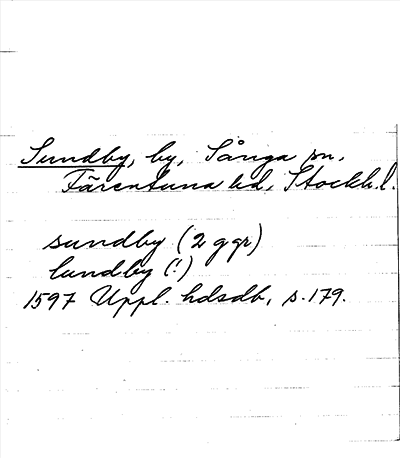 Sundby, by, Sånga sn,
Färentuna hd, Stockh.l.
sundby (2 ggr)
lundby (!)
1597 Uppl. hdsdb, s.179.